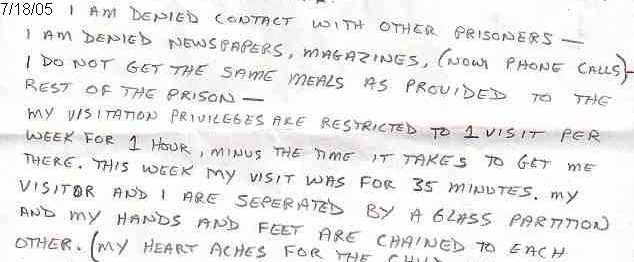 7/18/05
I AM DENIED CONTACT WITH OTHER PRISONERS —
I AM DENIED NEWSPAPERS, MAGAZINES, (NOW PHONE CALLS)—
I DO NOT GET THE SAME MEALS AS PROVIDED TO THE
REST OF THE PRISON —
MY VISITATION PRIVILEGES ARE RESTRICTED TO 1 VISIT PER
WEEK FOR 1 HOUR, MINUS THE TIME IT TAKES TO GET ME
THERE. THIS WEEK MY VISIT WAS FOR 35 MINUTES. MY
VISITOR AND I ARE SEPERATED BY A GLASS PARTITION
AND MY HANDS AND FEET ARE CHAINED TO EACH
OTHER. (MY HEART ACHES FOR THE